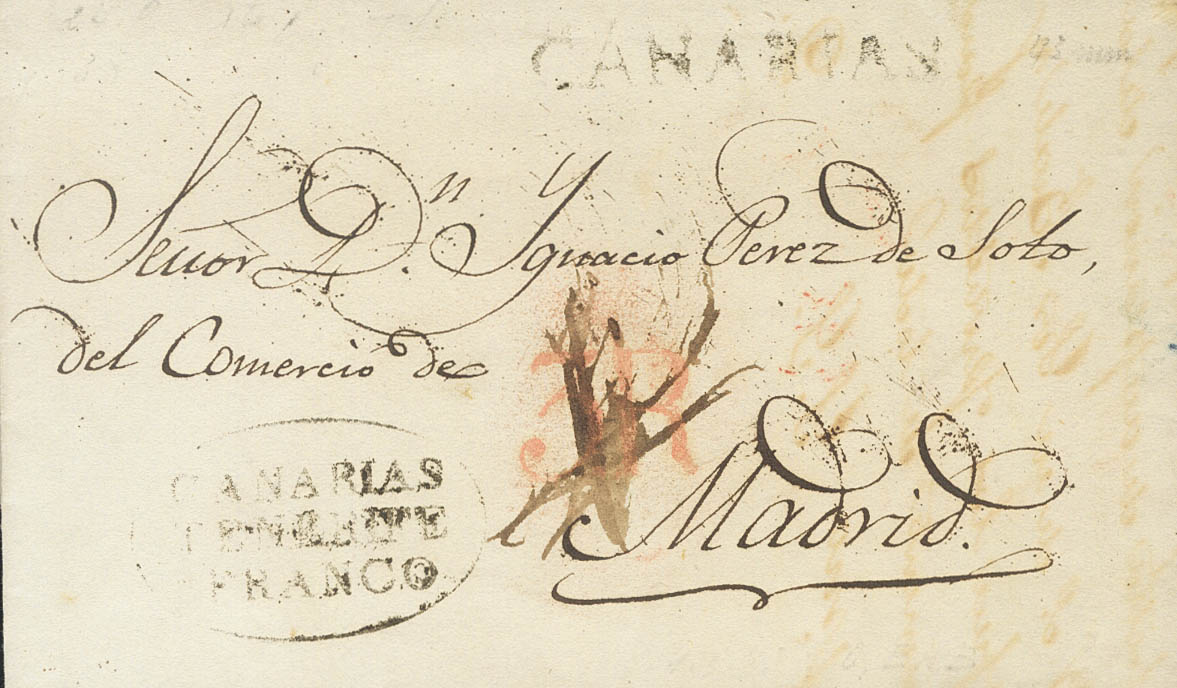 CANARIAS
43 mm
Señor D.n Ygnacio Perez de Soto,
del Comercio de
3R
Madrid.
CANARIAS
TENERIFE
FRANCO